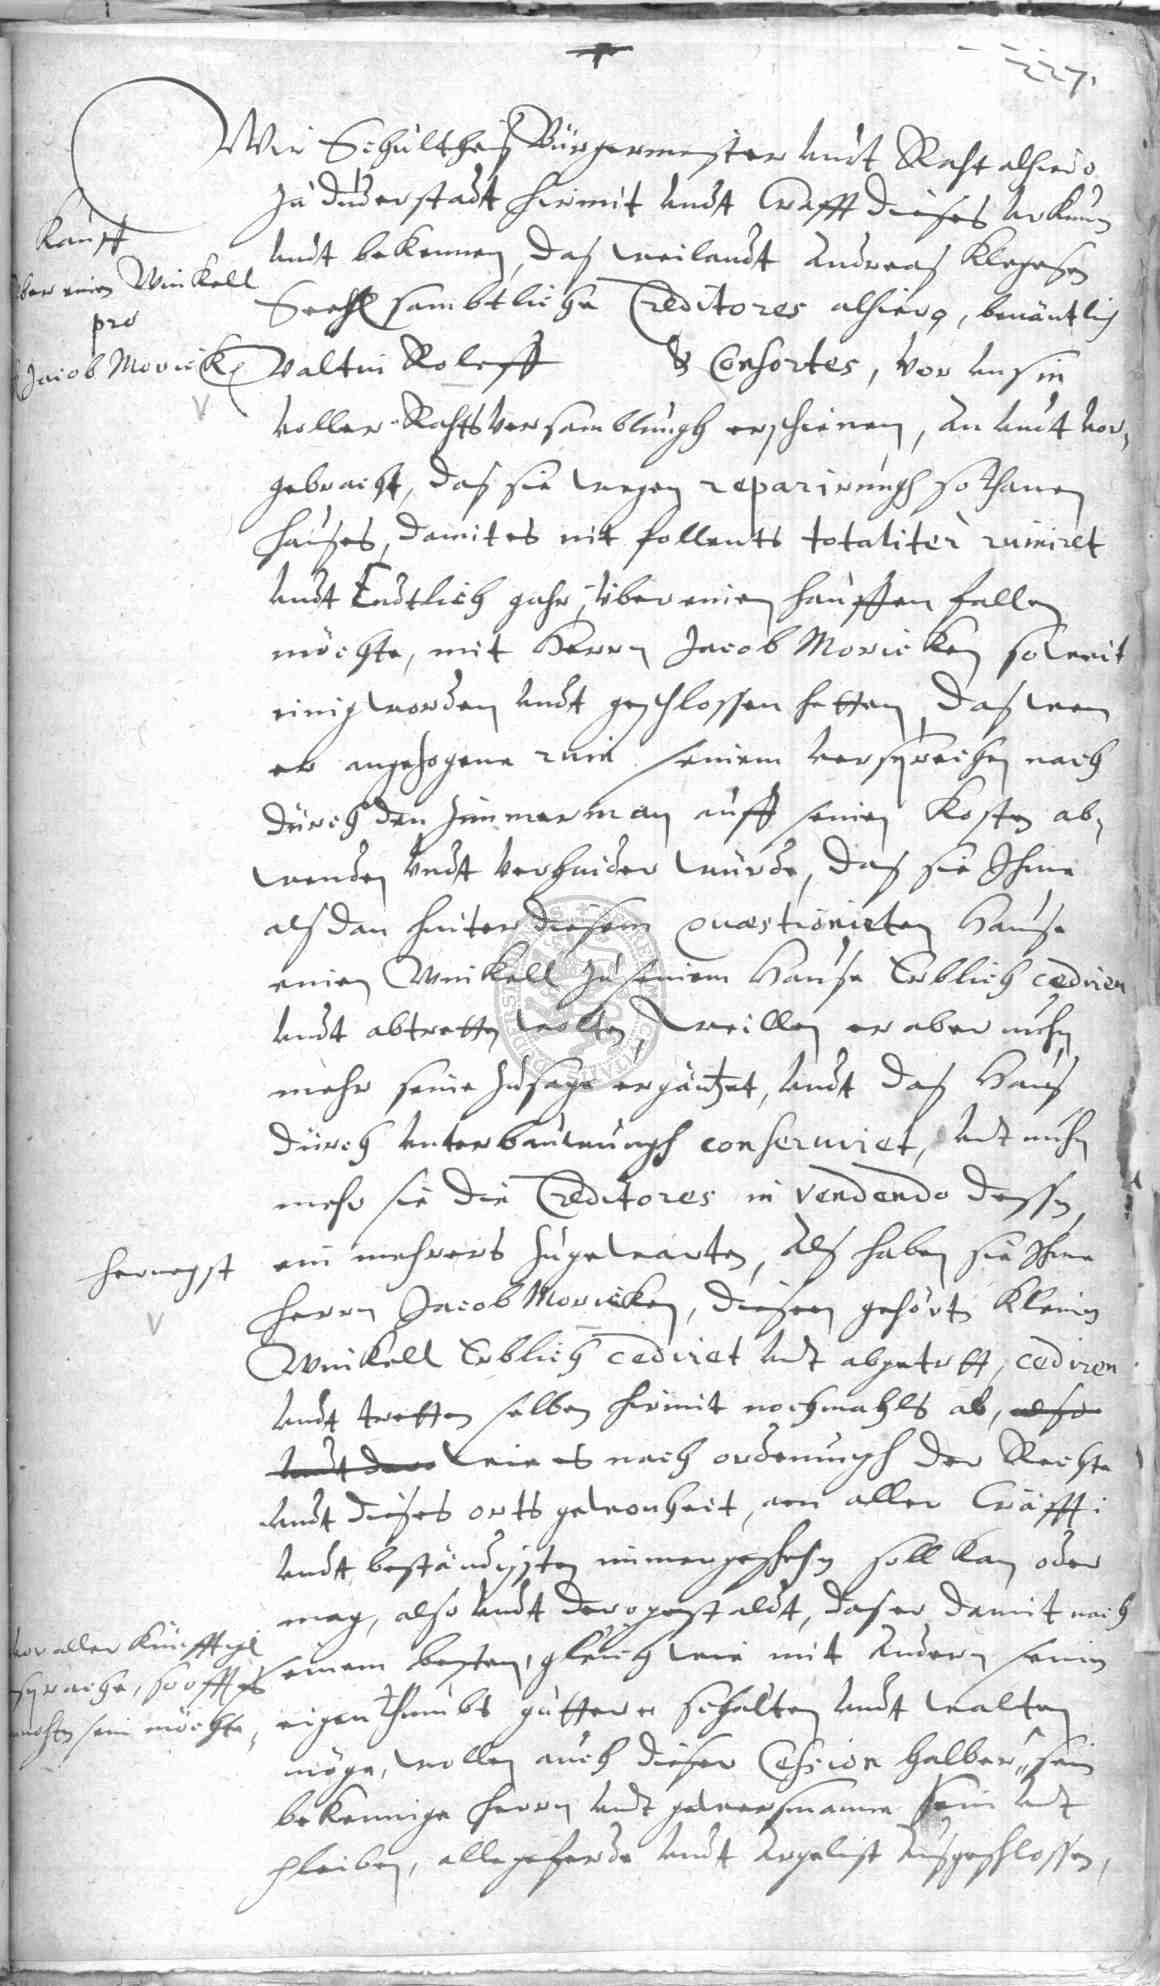 227.
Wir Schultheiß Bürgermeister undt Raht alhiero
zu Duderstadt hirmit undt Crafft dieses urkunen
undt bekennen, daß weilandt Andreaß Klegesen
Seehl sambtliche Creditores alhiero, benäntlich
Valtin Roleff & Consortes, vor uns in
voller Rahts versamblungh erschienen, an undt vor¬
gebracht, daß sie wegen reparirungh sothanen
hauses, damit es nit follents totaliter ruiniret
undt Endtlich gahr über einen hauffen fallen
möchte, mit Herrn Jacob Moricken soweit
einig worden undt geschlossen hetten, daß wen
er angezogene ruin seinem versprechen nach
durch den Zimmerman auff seinen Kosten ab¬
wenden undt verhinder würde, daß sie Ihme
alßdan hinter diesem quaestionirten Hause
einen Winkell zu seinem Hause Erblich cediren
undt abtretten wolten, weillen er aber nuhn
mehr seine Zusage ergäntzet, undt daß Hauß
durch unterbauwungh conserviret, undt nuhn
mehr sie die Creditores in vendendo dessen
ein mehrers zugewarten, Alß haben sie Ihme
Herrn Jacob Moricken, diesen gehörten kleinen
Winkell Erblich cediret undt abgetrett, cediren
undt tretten selben hirmit nochmahls ab, also
undt dero wie es nach ordenungh der Rechte
undt dieses orts gewonheit, am aller Cräffti
undt beständigsten immer geschehen soll kan oder
mag, also undt dergestaldt, daß er damit nach
seinem besten, gleich wie mit andern seinen
eigenthumbs güttern schalten undt walten
möge, wollen auch dieser Cession halber, sein
bekennige Herrn undt gewersmanne sein undt
pleiben, alle geferde undt Argelist außgeschlossen,
Kauff
über einen Winkell
pro
Jacob Moricken
hernegst
vor aller künfftigen
sprache, so offt es
nohten sein möchte,